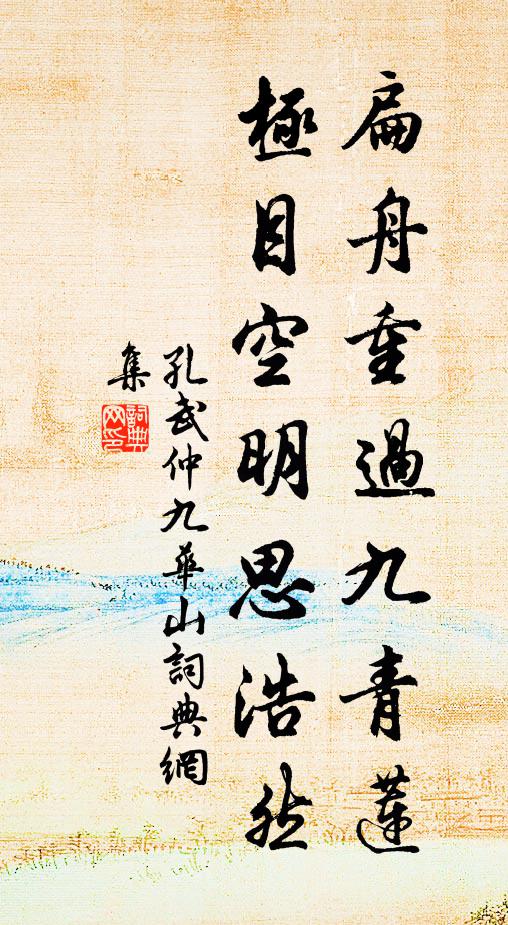 扁舟重過九青蓮
極目空明思浩然
孔武仲九華山詞典網
集
詞典網印